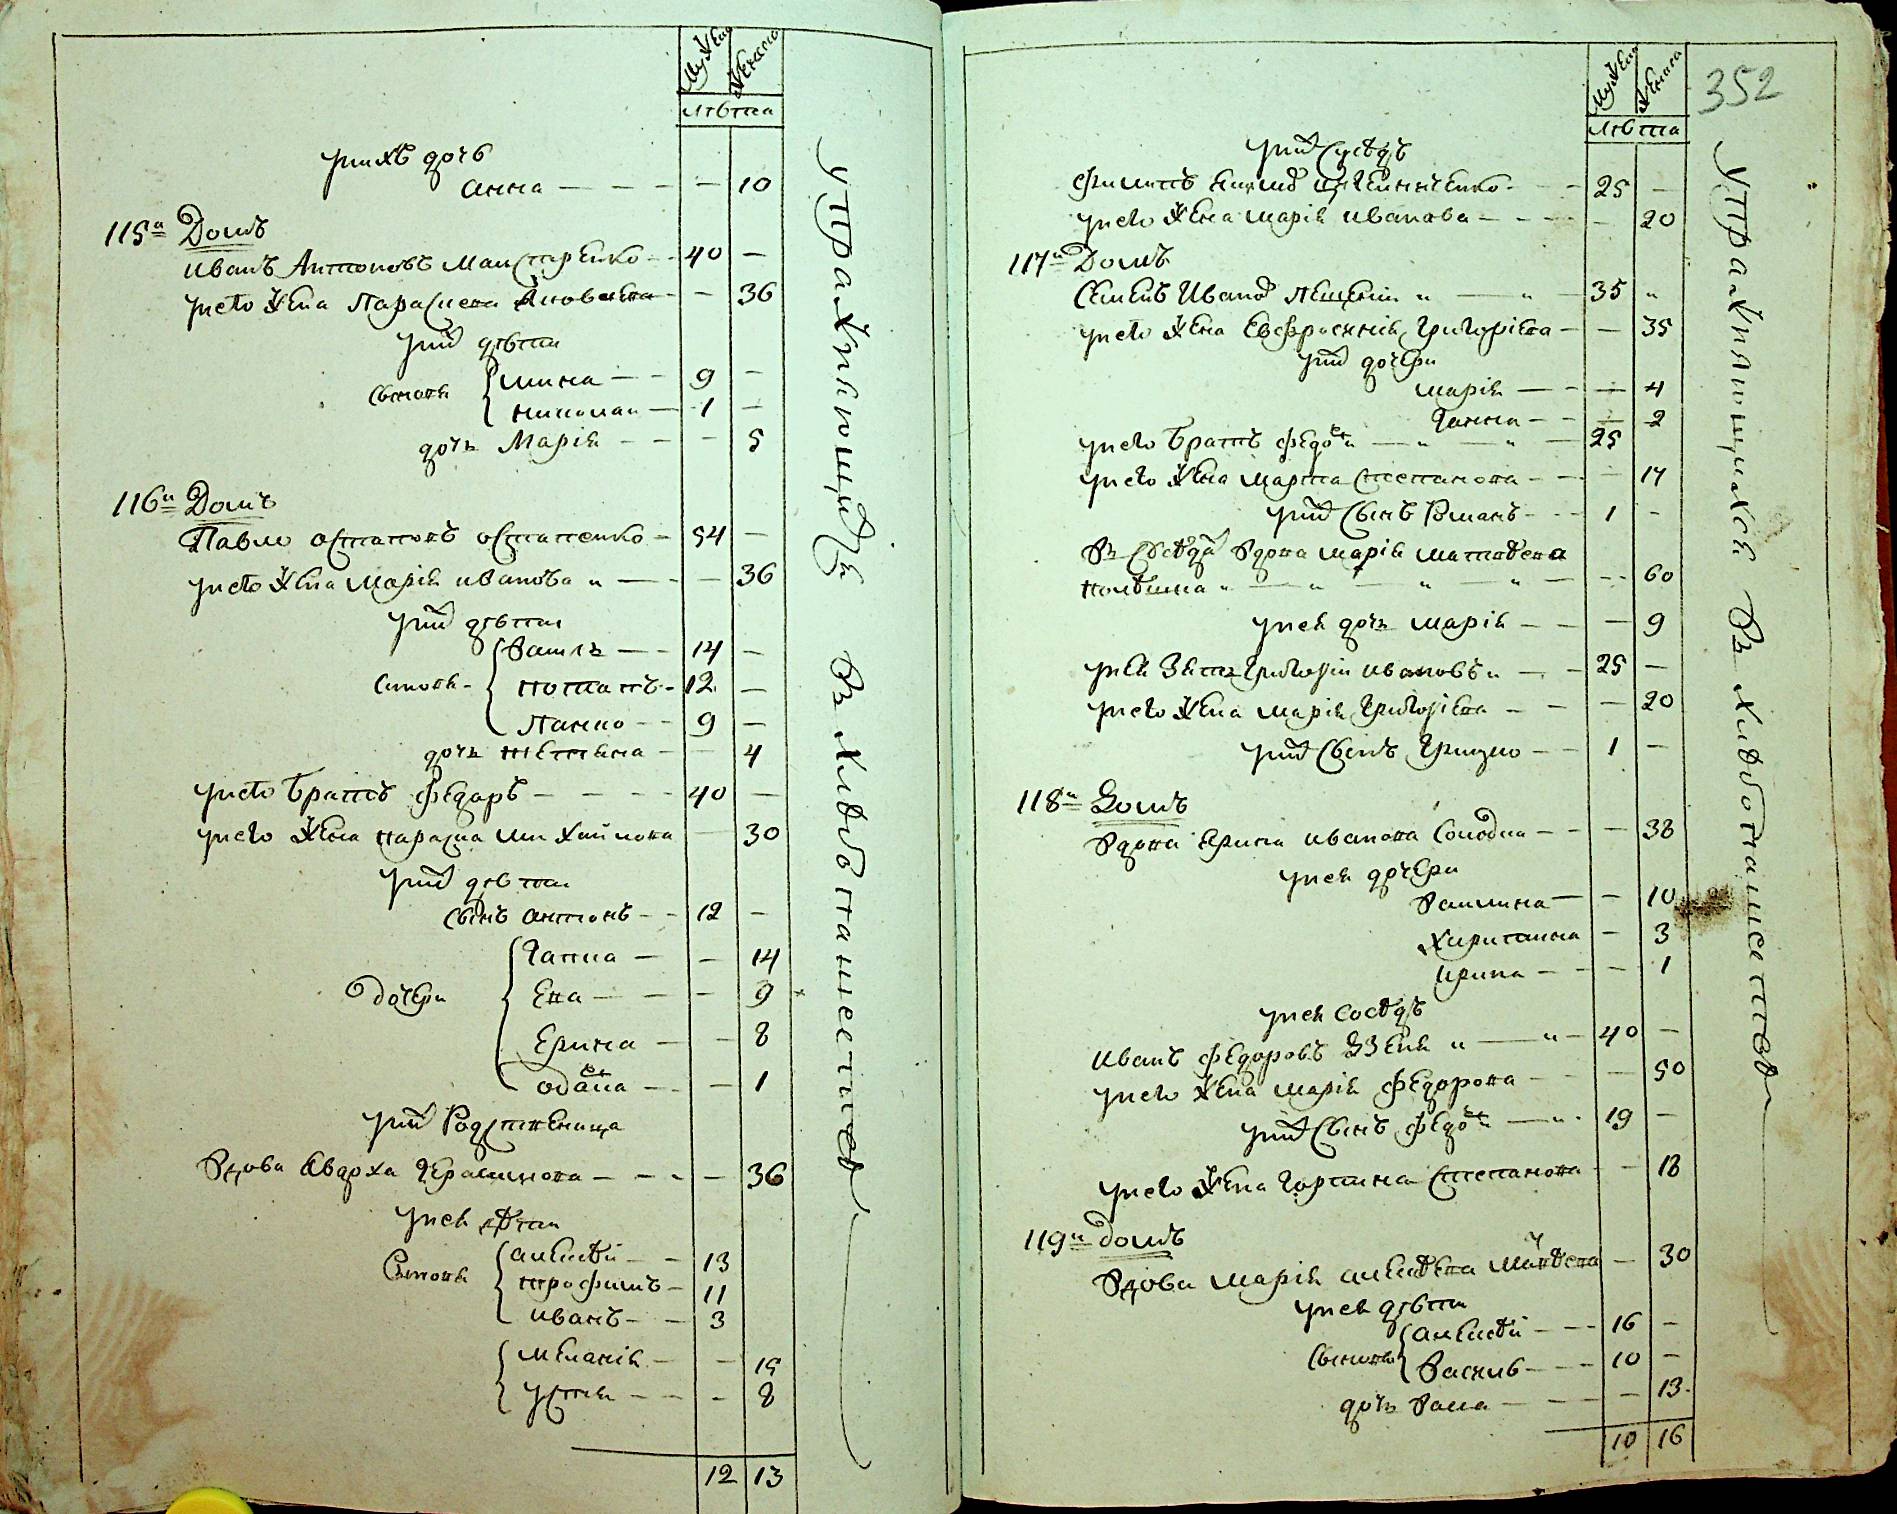 Мужеска Женска
лѣта
у нихъ дочь
Анна — — — — 10
115й Домъ
Иванъ Антоновъ Майстренко — 40 —
у него жена Параскева Яковлева — — 36
у нихъ дѣти
сыновя Мина — — 9 —
Николай — 1 —
дочь Марія — — — 5
116й Домъ
Павло Остаповъ Остапенко — 54 —
у него жена Марія Иванова „ — — 36
у нихъ дѣти
Василь — — 14 —
сыновя Потапъ — 12 —
Панко — — 9 —
дочь Тетяна — — 4
у него братъ Федоръ — — — — 40 —
у него жена Параска Михайлова — 30
у нихъ дѣти
сынъ Антонъ — — 12 —
Ганна — — 14
дочери Ева — — — 9
Ерина — — 8
Одаря — — 1
у нихъ родственица
вдова Евдоха Герасимова — — — — 36
у нея дѣти
сыновя Алексѣй — — 13
Трофимъ — 11
Иванъ — — 3
Меланія — — 15
Устія — — — 8
12 13
упражняющіяся въ хлѣбопашествѣ
352
Мужеска Женска
лѣта
у нихъ сусѣдъ
Филипъ — 25 —
у него жена Марія Иванова — — — 20
117й Домъ
Семенъ Ивановъ Лещенко „ — „ — 35 „
у него жена Евфросинія Григоріева — — 35
у нихъ дочери
Марія — — — 4
Ганна — — — 2
у него братъ Федоръ — „ — „ — 25
у него жена Марта Степанова — — — 17
у нихъ сынъ Романъ — — 1 —
въ сусѣдахъ вдова Марія Матвѣева
„ — „ — „ — „ — — 60
у нея дочь Марія — — — 9
у нея зять Григорій Ивановъ „ — 25 —
у него жена Марія Григоріева — — — 20
у нихъ сынъ Грицко — — 1 —
118й Домъ
вдова Ерина Иванова — — — 38
у нея дочери
Василина — — 10
Христина — 3
Ирина — — — 1
у нея сосѣдъ
Иванъ Федоровъ „ — „ — 40 —
у него жена Марія Федорова — — — 50
у нихъ сынъ Федоръ — „ — 19 —
у него жена Горпина Степанова — — 18
119й Домъ
вдова Марія Алексѣева — 30
у нея дѣти
Алексѣй — — — 16 —
сыновя Василь — — — 10 —
дочь Васса — — — — 13
10 16
упражняющихся въ хлѣбопашествѣ